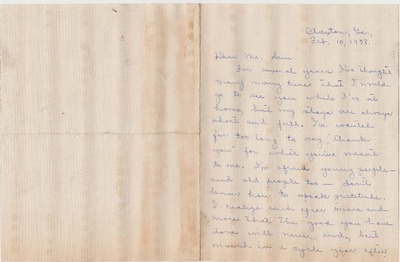 Clayton, Ga.,
Feb. 10, 1938.
Dear Mr. Sam:
For several years I've thought
many, many times that I would
go to see you while I'm at
home, but my stays are always
short and full. I've waited
far too long to say "thank
you" for what you've meant
to me. I'm afraid young people—
and old people too — don't
know how to speak gratitude.
I realize each year more and
more that the good you have
done will never end, but
march in a cycle year after